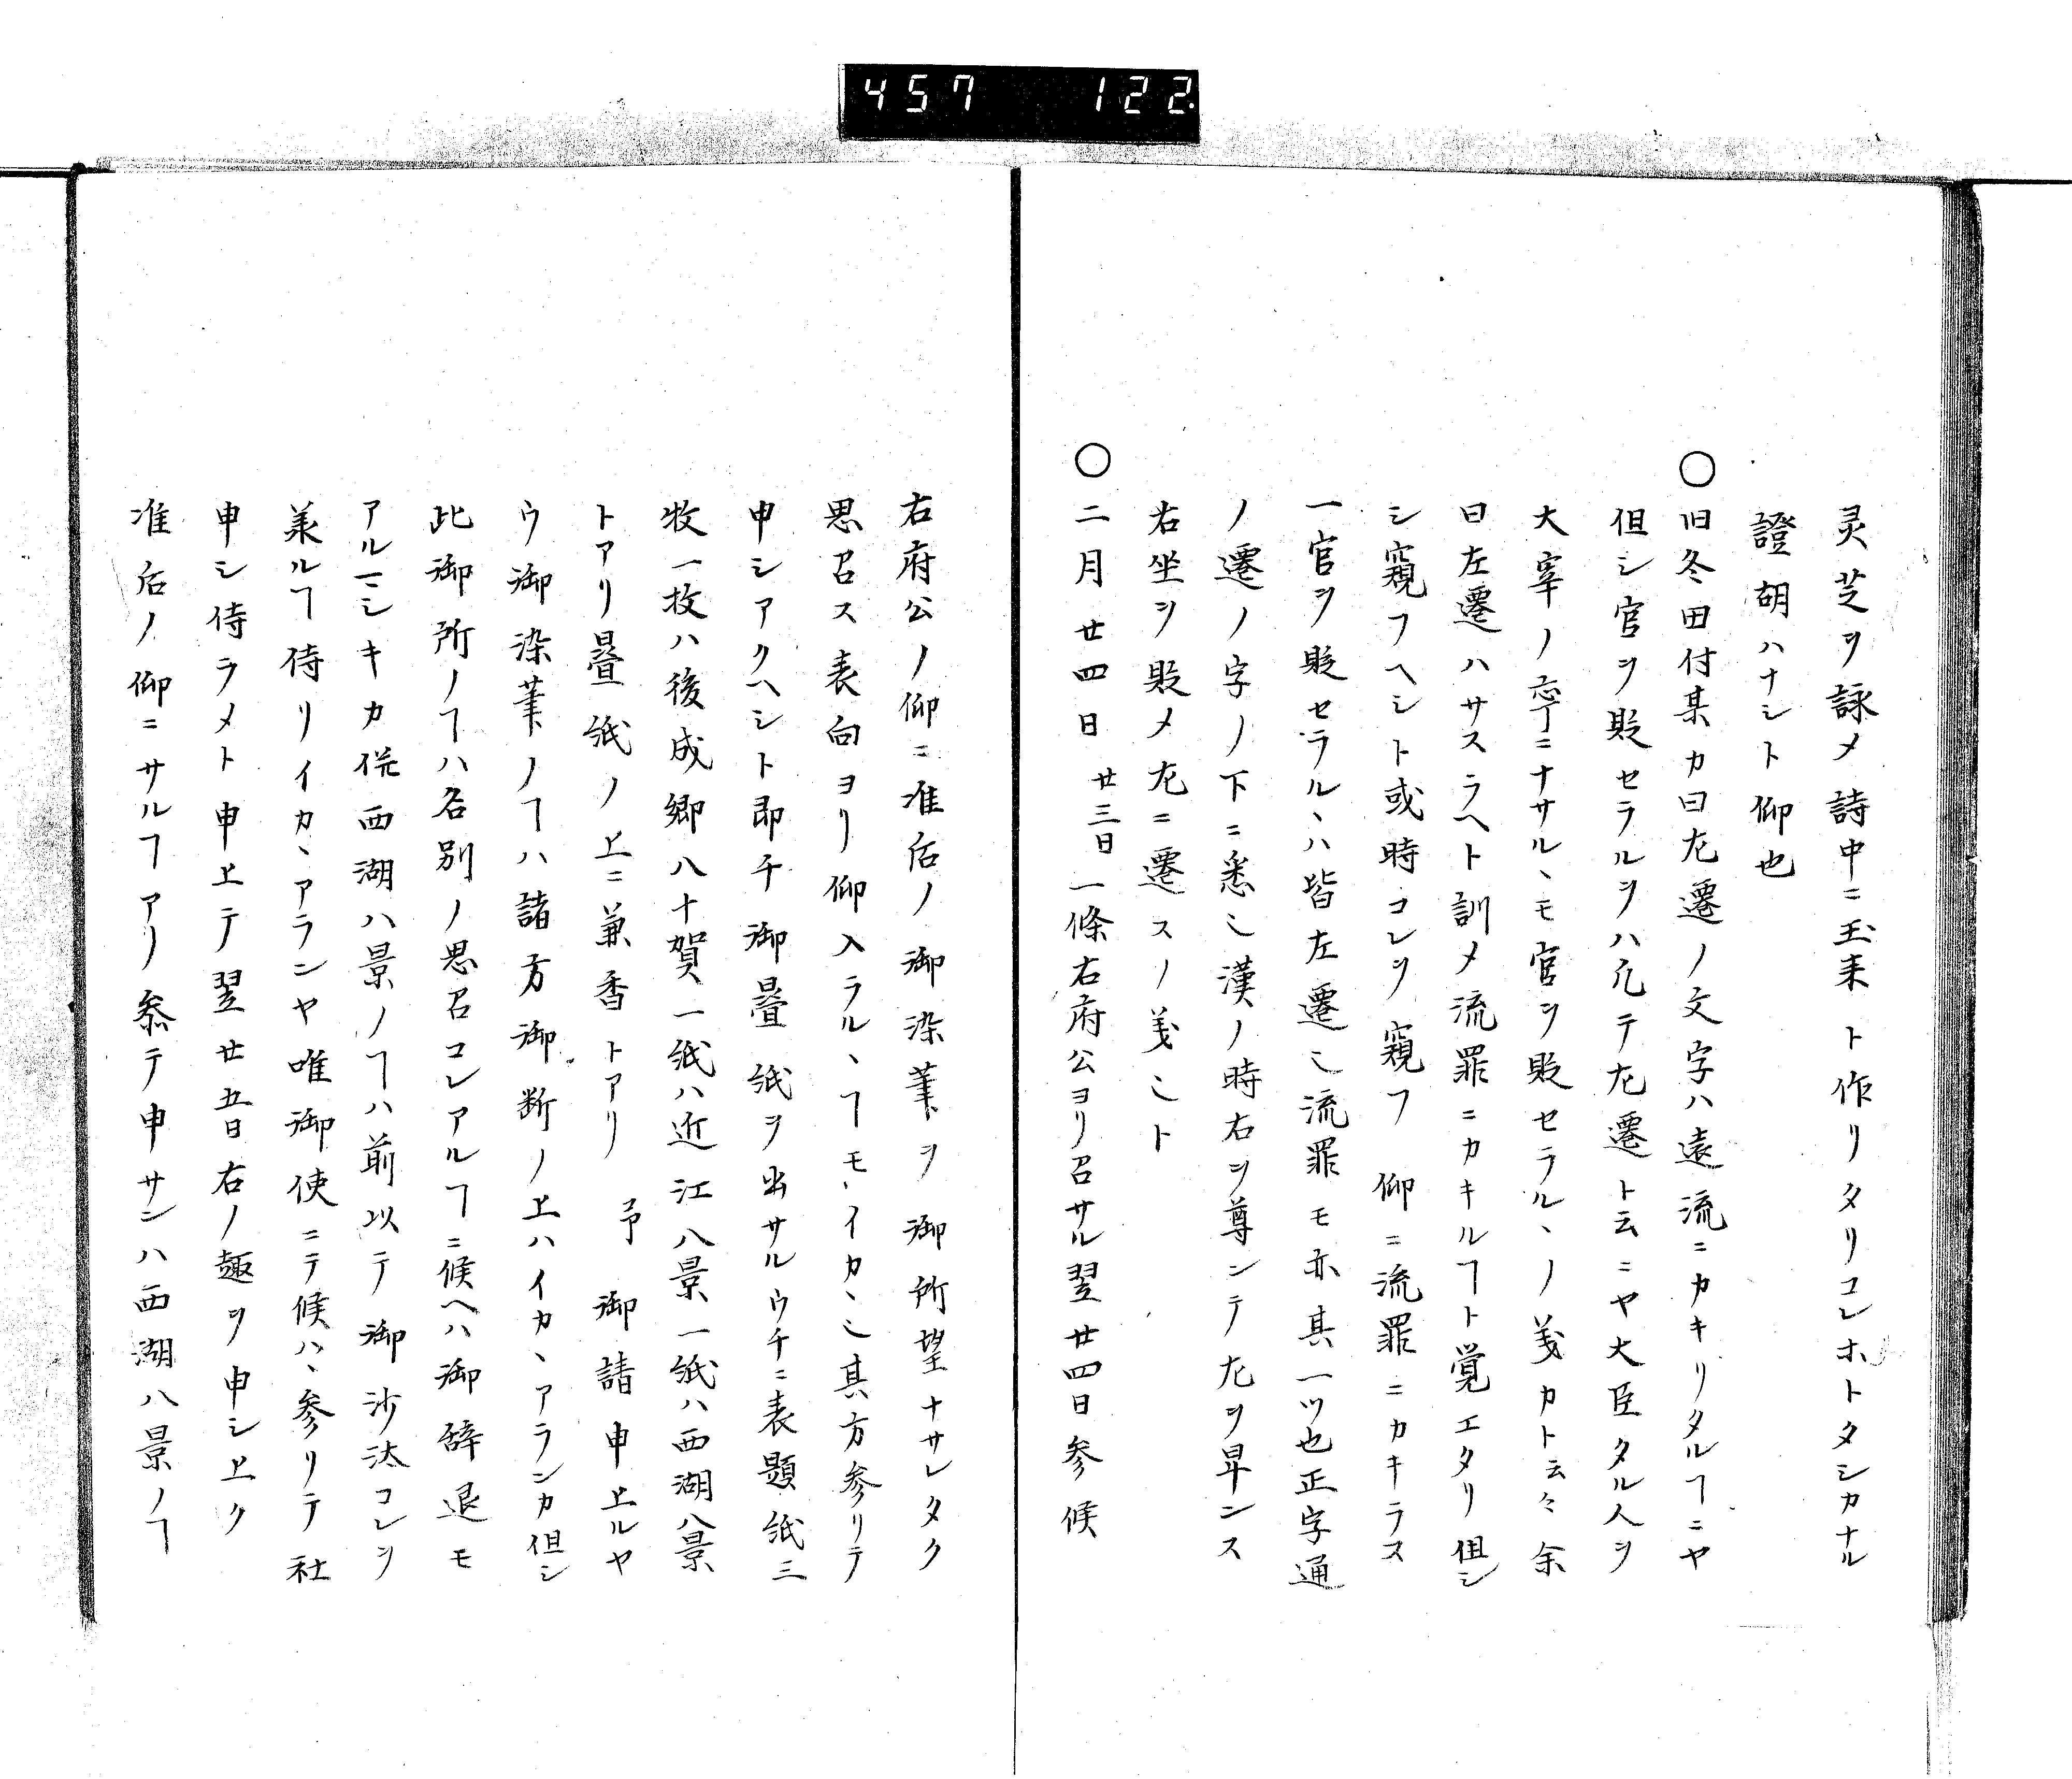 457 122
灵芝ヲ詠メ詩中ニ玉来ト作リタリコレホトタシカナル
證胡ハナシト仰也
○旧冬田付某カ曰左遷ノ文字ハ遠流ニカキリタルヿニヤ
但シ官ヲ貶セラルヽヲハ凢テ左遷ト云ニヤ大臣タル人ヲ
大宰ノ帥ニナサルヽモ官ヲ貶セラルヽノ義カト云々余
曰左遷ハサスラヘト訓メ流罪ニカキルヿト覚エタリ但シ
シ窺フヘシト或時コレヲ窺フ 仰ニ流罪ニカキラス
一官ヲ貶セラルヽハ皆左遷也流罪モ亦其一ツ也正字通
ノ遷ノ字ノ下ニ悉シ漢ノ時右ヲ尊ンテ左ヲ卑ンス
右坐ヲ貶メ左ニ遷スノ義也ト
○二月廿四日 廿三日一條右府公ヨリ召サル翌廿四日参候
右府公ノ仰ニ准后ノ御染筆ヲ御所望ナサレタク
思召ス表向ヨリ仰入ラルヽヿモイカヽ也其方参リテ
申シアクヘシト即チ御疊紙ヲ出サルウチニ表題紙三
牧一枚ハ後成郷八十賀一紙ハ近江八景一紙ハ西湖八景
トアリ疊紙ノ上ニ兼香トアリ 予御請申上ルヤ
ウ御染筆ノヿハ諸方御断ノ上ハイカヽアランカ但シ
此御所ノヿハ各別ノ思召コレアルヿニ候ヘハ御辞退モ
アルマシキカ併西湖八景ノヿハ前以テ御沙汰コレヲ
美ルヿ侍リイカヽアランヤ唯御使ニテ候ハヽ参リテ社
申シ侍ラメト申上テ翌廿五日右ノ趣ヲ申シ上ク
准后ノ仰ニサルヿアリ参テ申サンハ西湖八景ノヿ